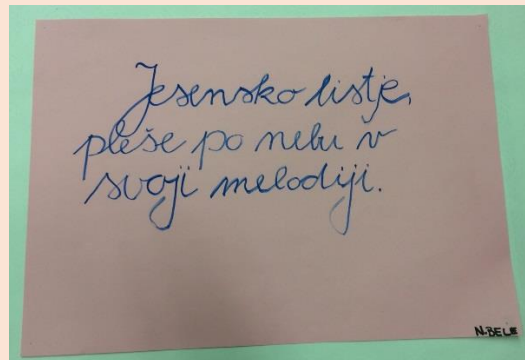 Jesensko listje,
pleše po nebu v
svoji melodiji.
N. BELE